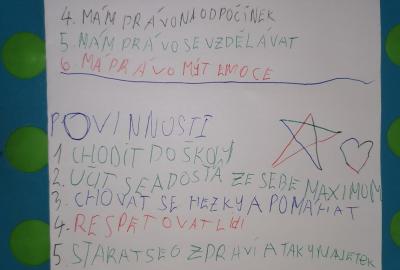 4. MÁM PRÁVO NA ODPOČINEK
5. MÁM PRÁVO SE VZDĚLÁVAT
6. MÁ PRÁVO MÝT EMOCE
POVINNOSTI
1. CHODIT DO ŠKOLY
2. UČIT SE A DOSTA ZE SEBE MAXIMUM
3. CHOVAT SE HEZKY A POMÁHAT
4. RESPETOVAT LIDI
5. STARAT SE O ZDRAVÍ A TAKY MAJETEK